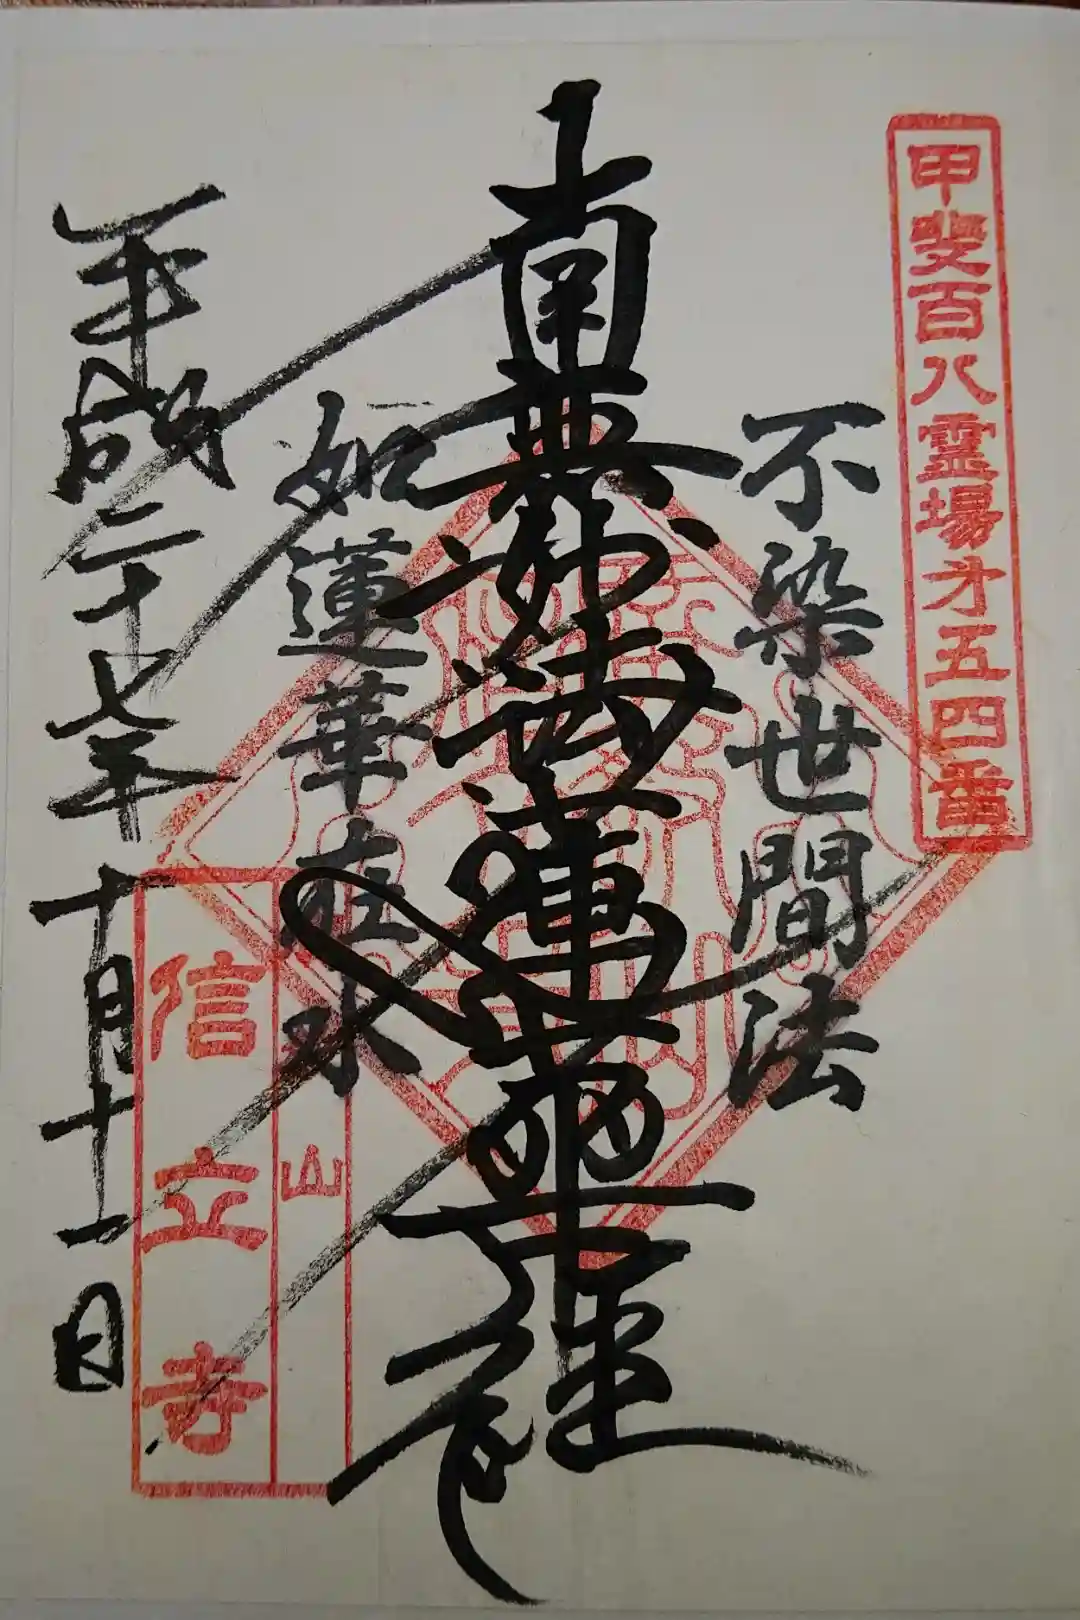 甲斐百八霊場才五四番
不染世間法
南無妙法蓮華経
如蓮華在水
山
信立寺
平成二十七年十月十一日